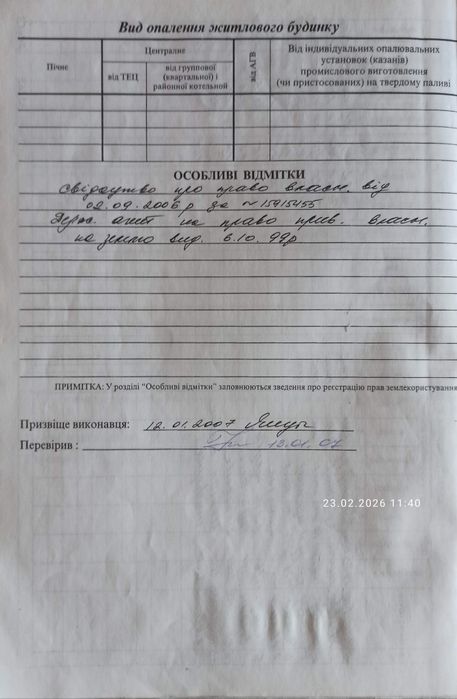 Вид опалення житлового будинку
Пічне
Центральне
від ТЕЦ
від группової (квартальної) і районної котельної
від АГВ
Від індивідуальних опалювальних установок (казанів) промислового виготовлення (чи пристосованих) на твердому паливі
ОСОБЛИВІ ВІДМІТКИ
Свідоцтво про право власн. від
02.09.2006 р за № 15915455
Держ. акт на право прив. власн.
на землю вид. 6.10.99р
ПРИМІТКА: У розділі "Особливі відмітки" заповнюються зведення про реєстрацію прав землекористування
Призвіще виконавця: 12.01.2007
Перевірив : 12.01.07
23.02.2026 11:40